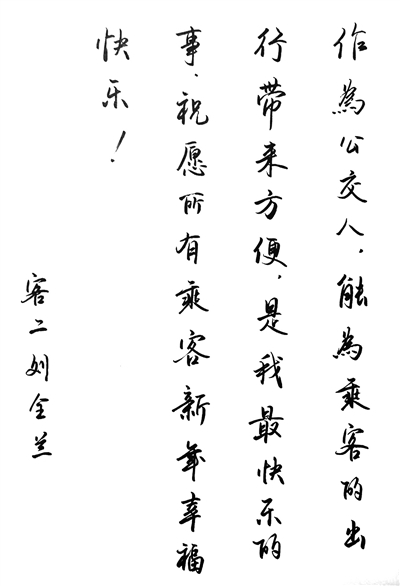 作為公交人，能為乘客的出
行带来方便，是我最快乐的
事、祝愿所有乘客新年幸福
快乐！
客二刘全兰